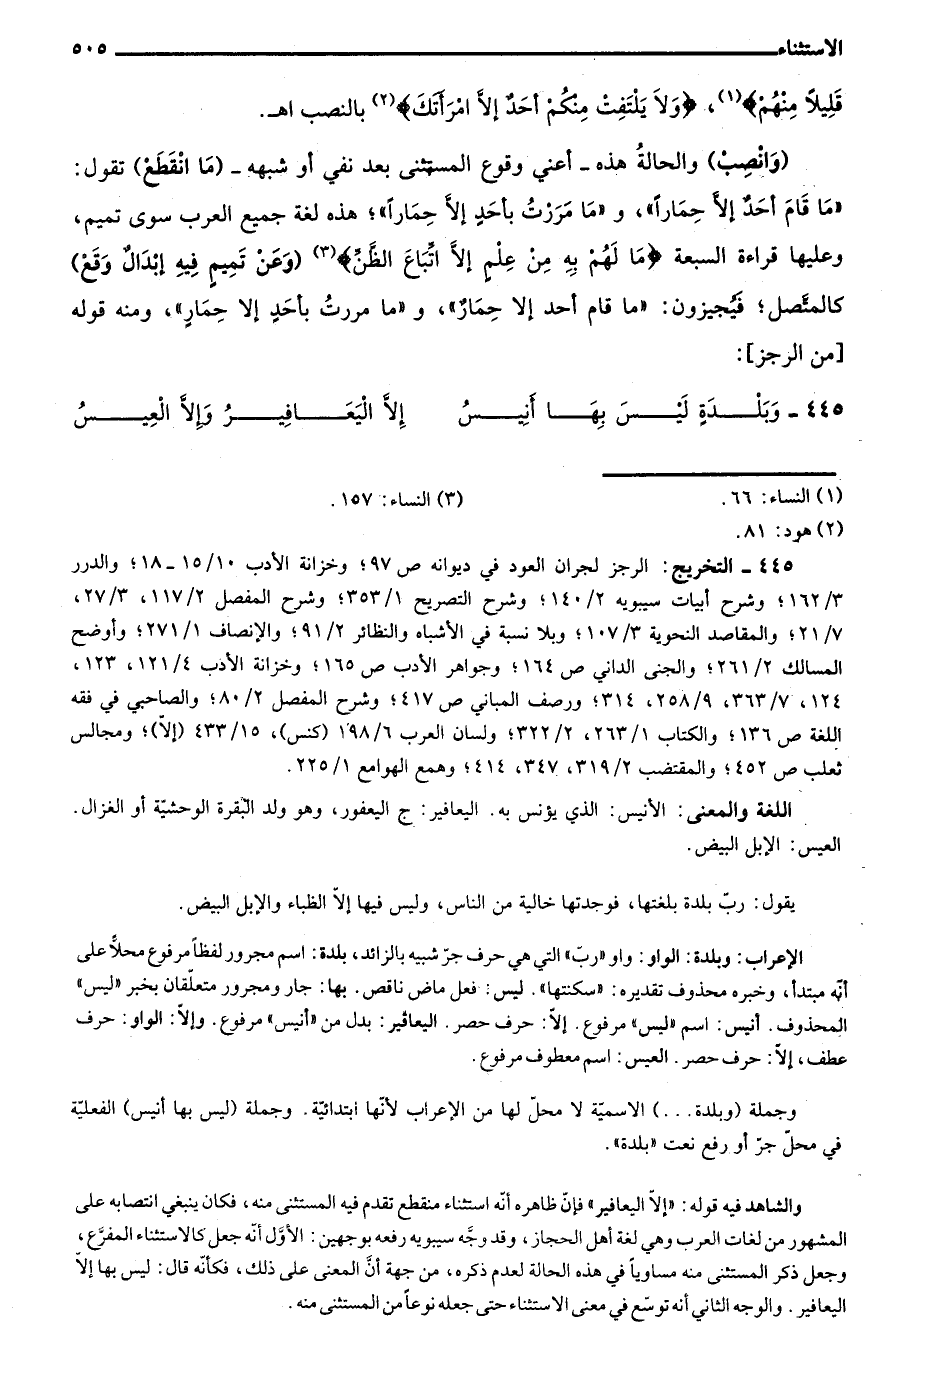 الاستثناء ٥٠٥
قَلِيلاً مِنْهُمْ﴾(١)، ﴿وَلاَ يَلْتَفِتْ مِنْكُمْ أَحَدٌ إلاَّ امْرَأَتَكَ﴾(٢) بالنصب اهـ.
(وَانْصِبْ) والحالةُ هذه ـ أعني وقوع المستثنى بعد نفي أو شبهه ـ (مَا انْقَطَعْ) تقول:
«مَا قَامَ أَحَدٌ إلاَّ حِمَاراً»، و «مَا مَرَرْتُ بأَحَدٍ إلاَّ حِمَاراً»؛ هذه لغة جميع العرب سوى تميم،
وعليها قراءة السبعة ﴿مَا لَهُمْ بِهِ مِنْ عِلْمٍ إلاَّ اتِّبَاعَ الظَّنِّ﴾(٣) (وَعَنْ تَمِيمٍ فِيهِ إبْدَالٌ وَقَعْ)
كالمتَّصل؛ فَيُجيزون: «ما قام أحد إلا حِمَارٌ»، و «ما مررتُ بأحَدٍ إلا حِمَارٍ»، ومنه قوله
[من الرجز]:
٤٤٥ ـ وَبَلْدَةٍ لَيْسَ بِهَا أَنِيسُ إلاَّ الْيَعَافِيرُ وَإلاَّ الْعِيسُ
(١) النساء: ٦٦. (٣) النساء: ١٥٧.
(٢) هود: ٨١.
٤٤٥ ـ التخريج: الرجز لجران العود في ديوانه ص ٩٧؛ وخزانة الأدب ١٠/ ١٥ ـ ١٨؛ والدرر
٣/ ١٦٢؛ وشرح أبيات سيبويه ٢/ ١٤٠؛ وشرح التصريح ١/ ٣٥٣؛ وشرح المفصل ٢/ ١١٧، ٣/ ٢٧،
٧/ ٢١؛ والمقاصد النحوية ٣/ ١٠٧؛ وبلا نسبة في الأشباه والنظائر ٢/ ٩١؛ والإنصاف ١/ ٢٧١؛ وأوضح
المسالك ٢/ ٢٦١؛ والجنى الداني ص ١٦٤؛ وجواهر الأدب ص ١٦٥؛ وخزانة الأدب ٤/ ١٢١، ١٢٣،
١٢٤، ٧/ ٣٦٣، ٩/ ٢٥٨، ٣١٤؛ ورصف المباني ص ٤١٧؛ وشرح المفصل ٢/ ٨٠؛ والصاحبي في فقه
اللغة ص ١٣٦؛ والكتاب ١/ ٢٦٣، ٢/ ٣٢٢؛ ولسان العرب ٦/ ١٩٨ (كنس)، ١٥/ ٤٣٣ (إلاّ)؛ ومجالس
ثعلب ص ٤٥٢؛ والمقتضب ٢/ ٣١٩، ٣٤٧، ٤١٤؛ وهمع الهوامع ١/ ٢٢٥.
اللغة والمعنى: الأنيس: الذي يؤنس به. اليعافير: ج اليعفور، وهو ولد البقرة الوحشيّة أو الغزال.
العيس: الإبل البيض.
يقول: ربّ بلدة بلغتها، فوجدتها خالية من الناس، وليس فيها إلاّ الظباء والإبل البيض.
الإعراب: وبلدة: الواو: واو «ربّ» التي هي حرف جرّ شبيه بالزائد، بلدة: اسم مجرور لفظاً مرفوع محلاًّ على
أنّه مبتدأ، وخبره محذوف تقديره: «سكنتها». ليس: فعل ماض ناقص. بها: جار ومجرور متعلّقان بخبر «ليس»
المحذوف. أنيس: اسم «ليس» مرفوع. إلاّ: حرف حصر. اليعافير: بدل من «أنيس» مرفوع. وإلاّ: الواو: حرف
عطف، إلاّ: حرف حصر. العيس: اسم معطوف مرفوع.
وجملة (وبلدة...) الاسميّة لا محلّ لها من الإعراب لأنّها ابتدائيّة. وجملة (ليس بها أنيس) الفعليّة
في محلّ جرّ أو رفع نعت «بلدة».
والشاهد فيه قوله: «إلاّ اليعافير» فإنّ ظاهره أنّه استثناء منقطع تقدم فيه المستثنى منه، فكان ينبغي انتصابه على
المشهور من لغات العرب وهي لغة أهل الحجاز، وقد وجَّه سيبويه رفعه بوجهين: الأوَّل أنّه جعل كالاستثناء المفرَّع،
وجعل ذكر المستثنى منه مساوياً في هذه الحالة لعدم ذكره، من جهة أنَّ المعنى على ذلك، فكأنّه قال: ليس بها إلاّ
اليعافير. والوجه الثاني أنه توسّع في معنى الاستثناء حتى جعله نوعاً من المستثنى منه.